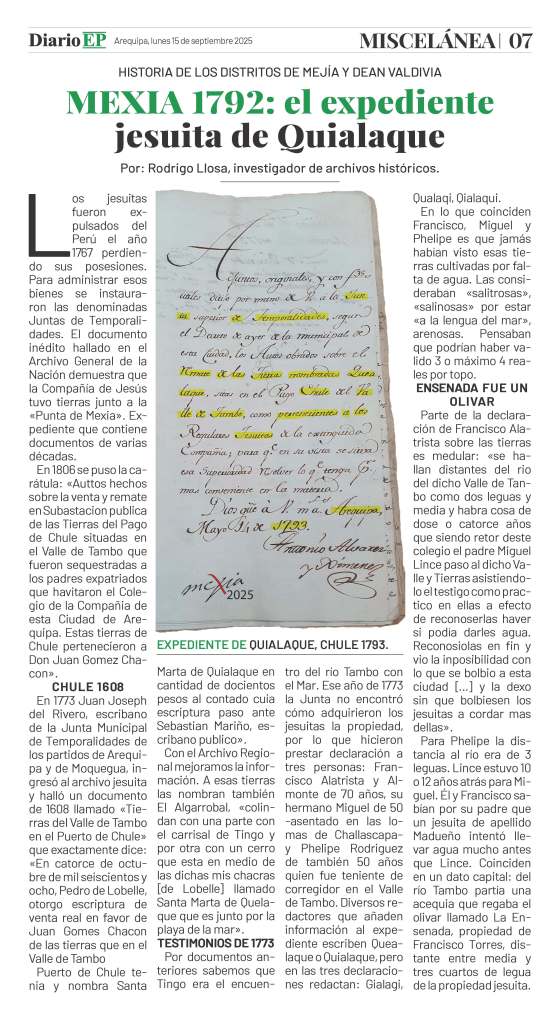 Diario EP
Arequipa, lunes 15 de septiembre 2025
MISCELÁNEA | 07
HISTORIA DE LOS DISTRITOS DE MEJÍA Y DEAN VALDIVIA
MEXIA 1792: el expediente
jesuita de Quialaque
Por: Rodrigo Llosa, investigador de archivos históricos.
Los jesuitas
fueron ex-
pulsados del
Perú el año
1767 perdien-
do sus posesiones.
Para administrar esos
bienes se instaura-
ron las denominadas
Juntas de Temporali-
dades. El documento
inédito hallado en el
Archivo General de la
Nación demuestra que
la Compañía de Jesús
tuvo tierras junto a la
«Punta de Mexia». Ex-
pediente que contiene
documentos de varias
décadas.
En 1806 se puso la ca-
rátula: «Auttos hechos
sobre la venta y remate
en Subastacion publica
de las Tierras del Pago
de Chule situadas en
el Valle de Tambo que
fueron sequestradas a
los padres expatriados
que havitaron el Cole-
gio de la Compañía de
esta Ciudad de Are-
quipa. Estas tierras de
Chule pertenecieron a
Don Juan Gomez Cha-
con».
CHULE 1608
En 1773 Juan Joseph
del Rivero, escribano
de la Junta Municipal
de Temporalidades de
los partidos de Arequi-
pa y de Moquegua, in-
gresó al archivo jesuita
y halló un documento
de 1608 llamado «Tie-
rras del Valle de Tambo
en el Puerto de Chule»
que exactamente dice:
«En catorce de octu-
bre de mil seiscientos y
ocho, Pedro de Lobelle,
otorgo escriptura de
venta real en favor de
Juan Gomes Chacon
de las tierras que en el
Valle de Tambo
Puerto de Chule te-
nia y nombra Santa
Antonio Alvarez
y Ximenez
mexia
2025
EXPEDIENTE DE QUIALAQUE, CHULE 1793.
Marta de Quialaque en
cantidad de docientos
pesos al contado cuia
escriptura paso ante
Sebastian Mariño, es-
cribano publico».
Con el Archivo Regio-
nal mejoramos la infor-
mación. A esas tierras
las nombran también
El Algarrobal, «colin-
dan con una parte con
el carrisal de Tingo y
por otra con un cerro
que esta en medio de
las dichas mis chacras
[de Lobelle] llamado
Santa Marta de Quela-
que que es junto por la
playa de la mar».
TESTIMONIOS DE 1773
Por documentos an-
teriores sabemos que
Tingo era el encuen-
tro del río Tambo con
el Mar. Ese año de 1773
la Junta no encontró
cómo adquirieron los
jesuitas la propiedad,
por lo que hicieron
prestar declaración a
tres personas: Fran-
cisco Alatrista y Al-
monte de 70 años, su
hermano Miguel de 50
-asentado en las lo-
mas de Challascapa-
y Phelipe Rodriguez
de también 50 años
quien fue teniente de
corregidor en el Valle
de Tambo. Diversos re-
dactores que añaden
información al expe-
diente escriben Quea-
laque o Quialaque, pero
en las tres declaracio-
nes redactan: Gialagi,
Qualaqi, Qialaqui.
En lo que coinciden
Francisco, Miguel y
Phelipe es que jamás
habían visto esas tie-
rras cultivadas por fal-
ta de agua. Las consi-
deraban «salitrosas»,
«salinosas» por estar
«a la lengua del mar»,
arenosas. Pensaban
que podrían haber va-
lido 3 o máximo 4 rea-
les por topo.
ENSENADA FUE UN
OLIVAR
Parte de la declara-
ción de Francisco Ala-
trista sobre las tierras
es medular: «se ha-
llan distantes del rio
del dicho Valle de Tan-
bo como dos leguas y
media y habra cosa de
dose o catorce años
que siendo retor deste
colegio el padre Miguel
Lince paso al dicho Va-
lle y Tierras asistiendo-
lo el testigo como prac-
tico en ellas a efecto
de reconoserlas haver
si podia darles agua.
Reconosiolas en fin y
vio la inposibilidad con
lo que se bolbio a esta
ciudad [...] y la dexo
sin que bolbiesen los
jesuitas a cordar mas
dellas».
Para Phelipe la dis-
tancia al río era de 3
leguas. Lince estuvo 10
o 12 años atrás para Mi-
guel. Él y Francisco sa-
bían por su padre que
un jesuita de apellido
Madueño intentó lle-
var agua mucho antes
que Lince. Coinciden
en un dato capital: del
río Tambo partía una
acequia que regaba el
olivar llamado La En-
senada, propiedad de
Francisco Torres, dis-
tante entre media y
tres cuartos de legua
de la propiedad jesuita.